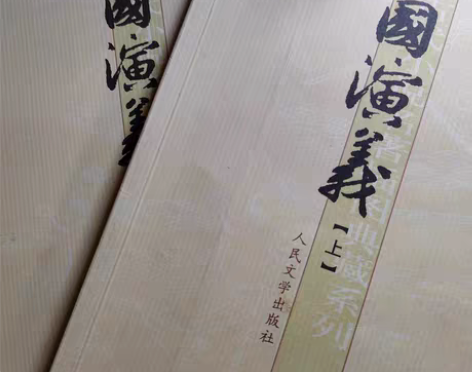 國演義
國演義
【上】
人民文学出版社
典藏系列